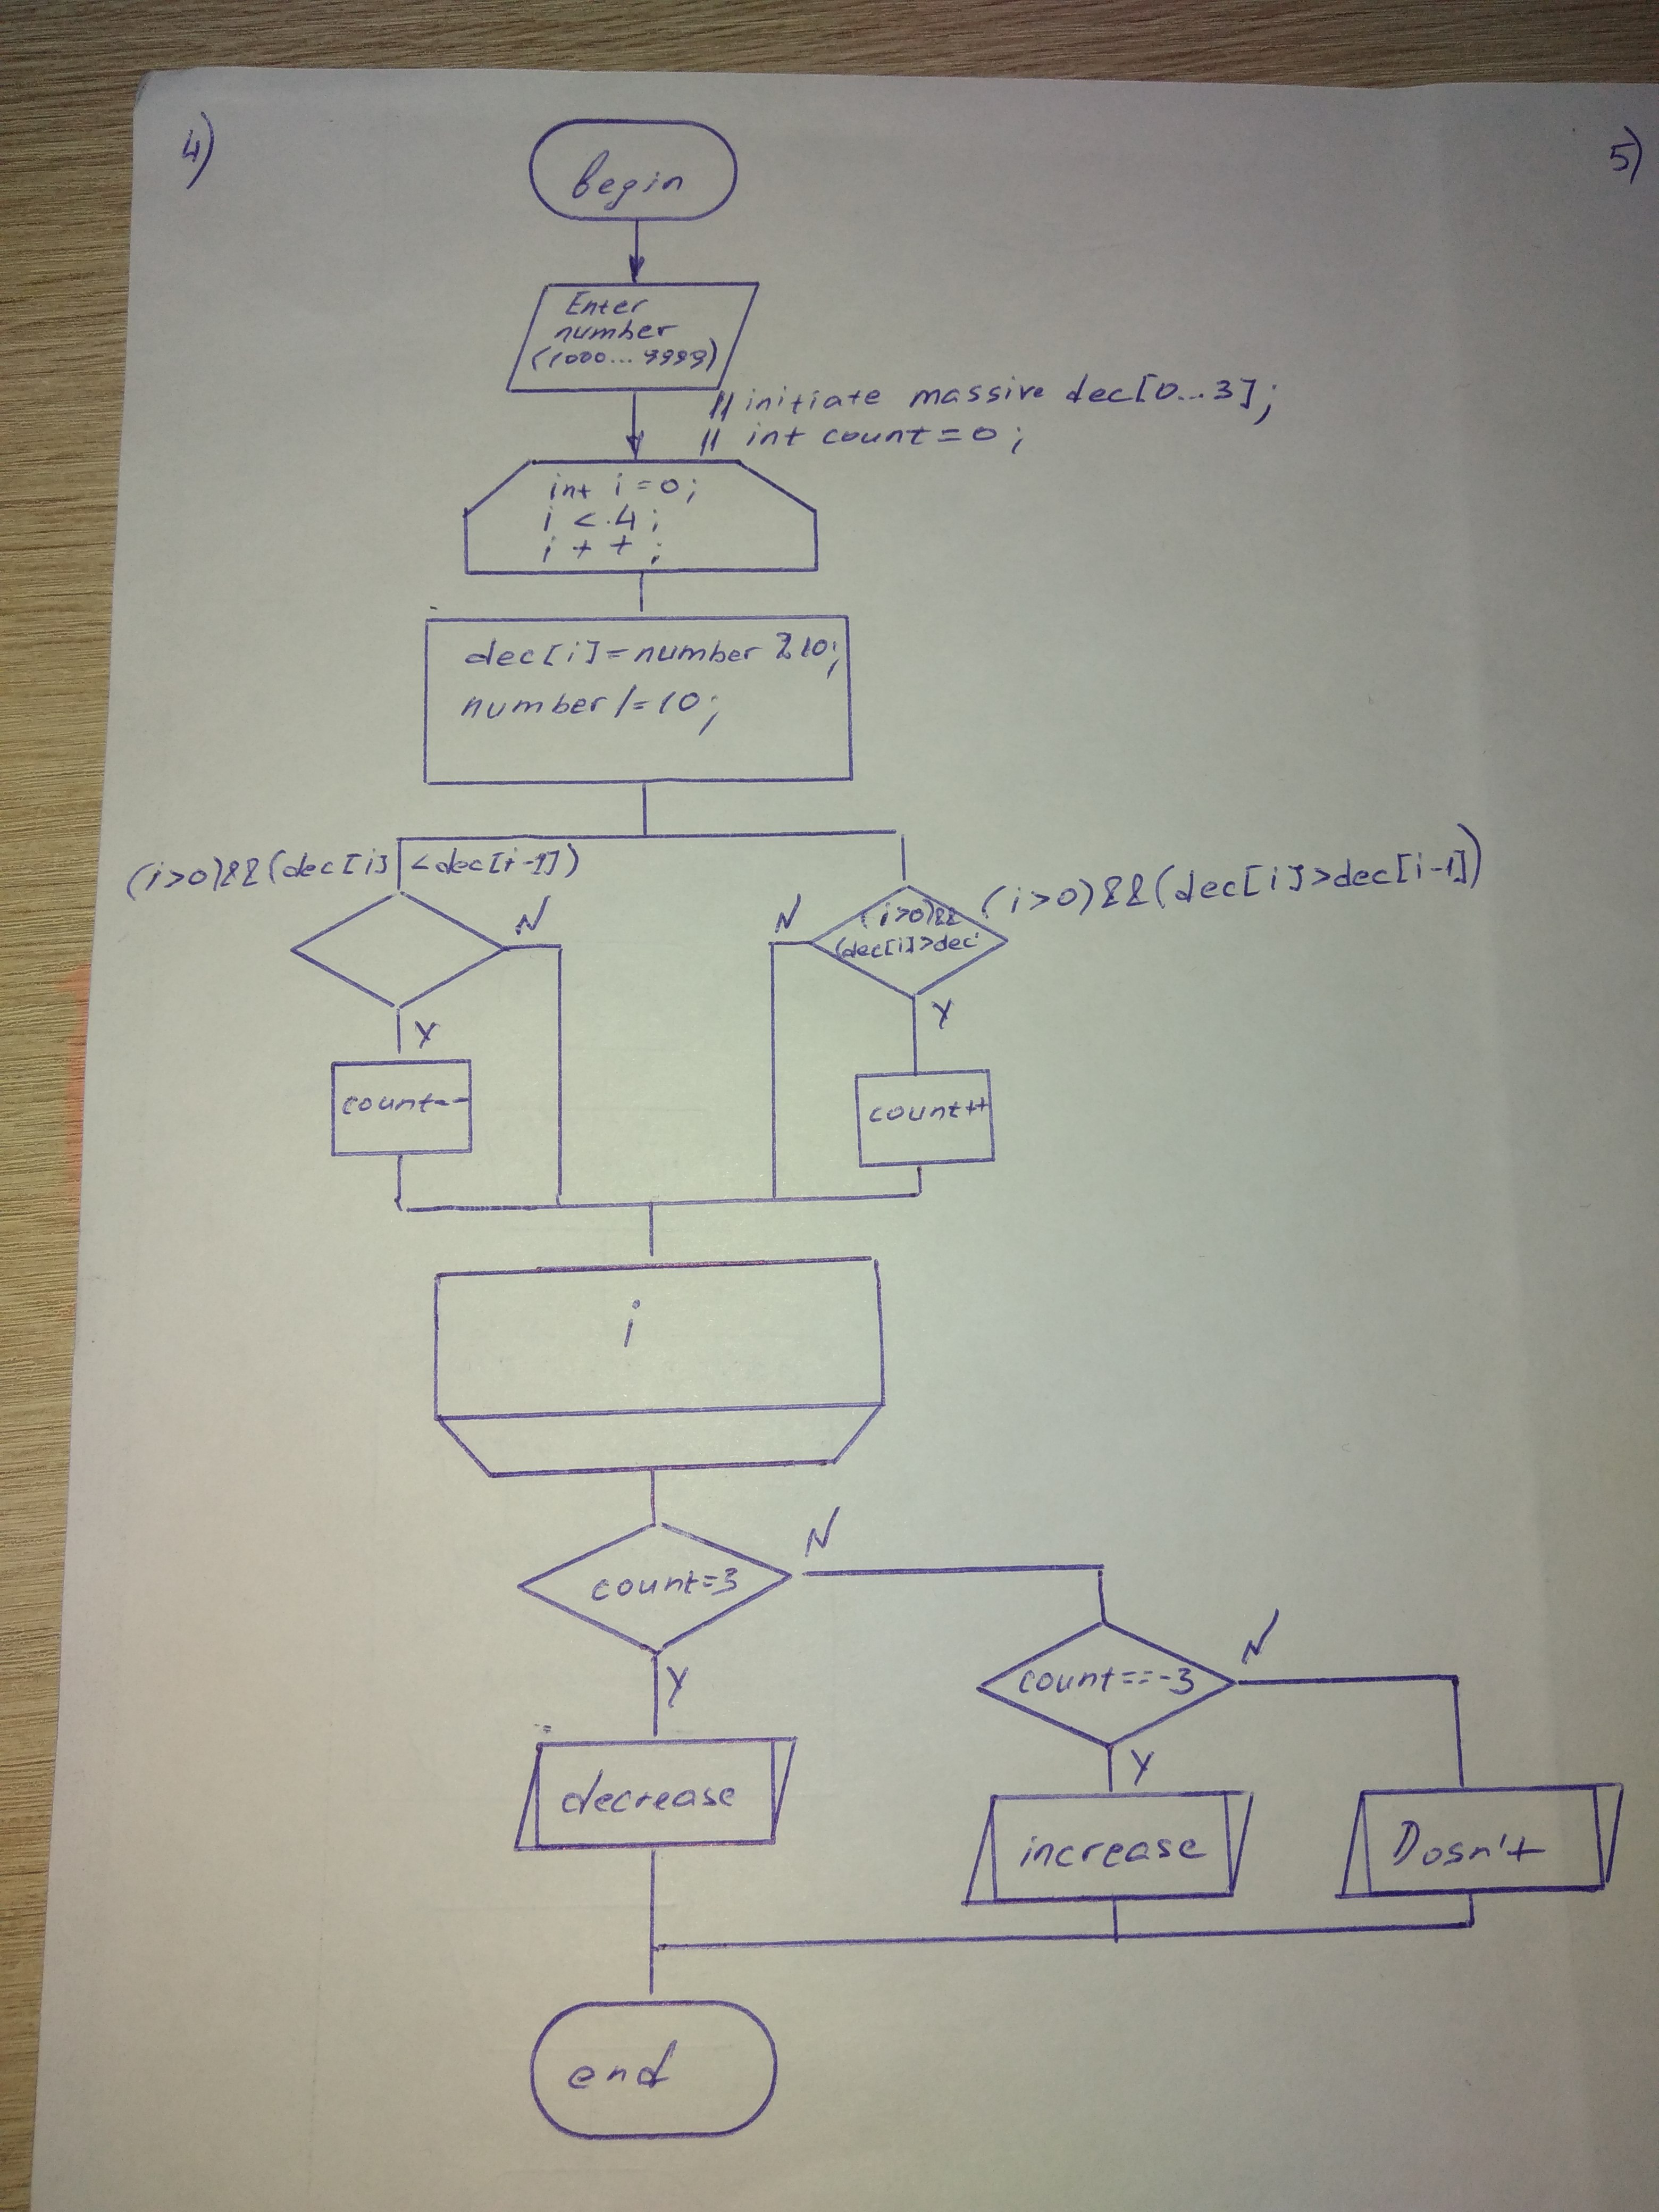 4)
5)
begin
Enter
number
(1000...9999)
// initiate massive dec[0...3];
// int count=0;
int i=0;
i<4;
i++;
dec[i]=number%10;
number/=10;
(i>0)&&(dec[i]<dec[i-1])
N
Y
count--
N
(i>0)&&
(dec[i]>dec
(i>0)&&(dec[i]>dec[i-1])
Y
count++
i
count=3
N
Y
decrease
count==-3
N
Y
increase
Dosn't
end